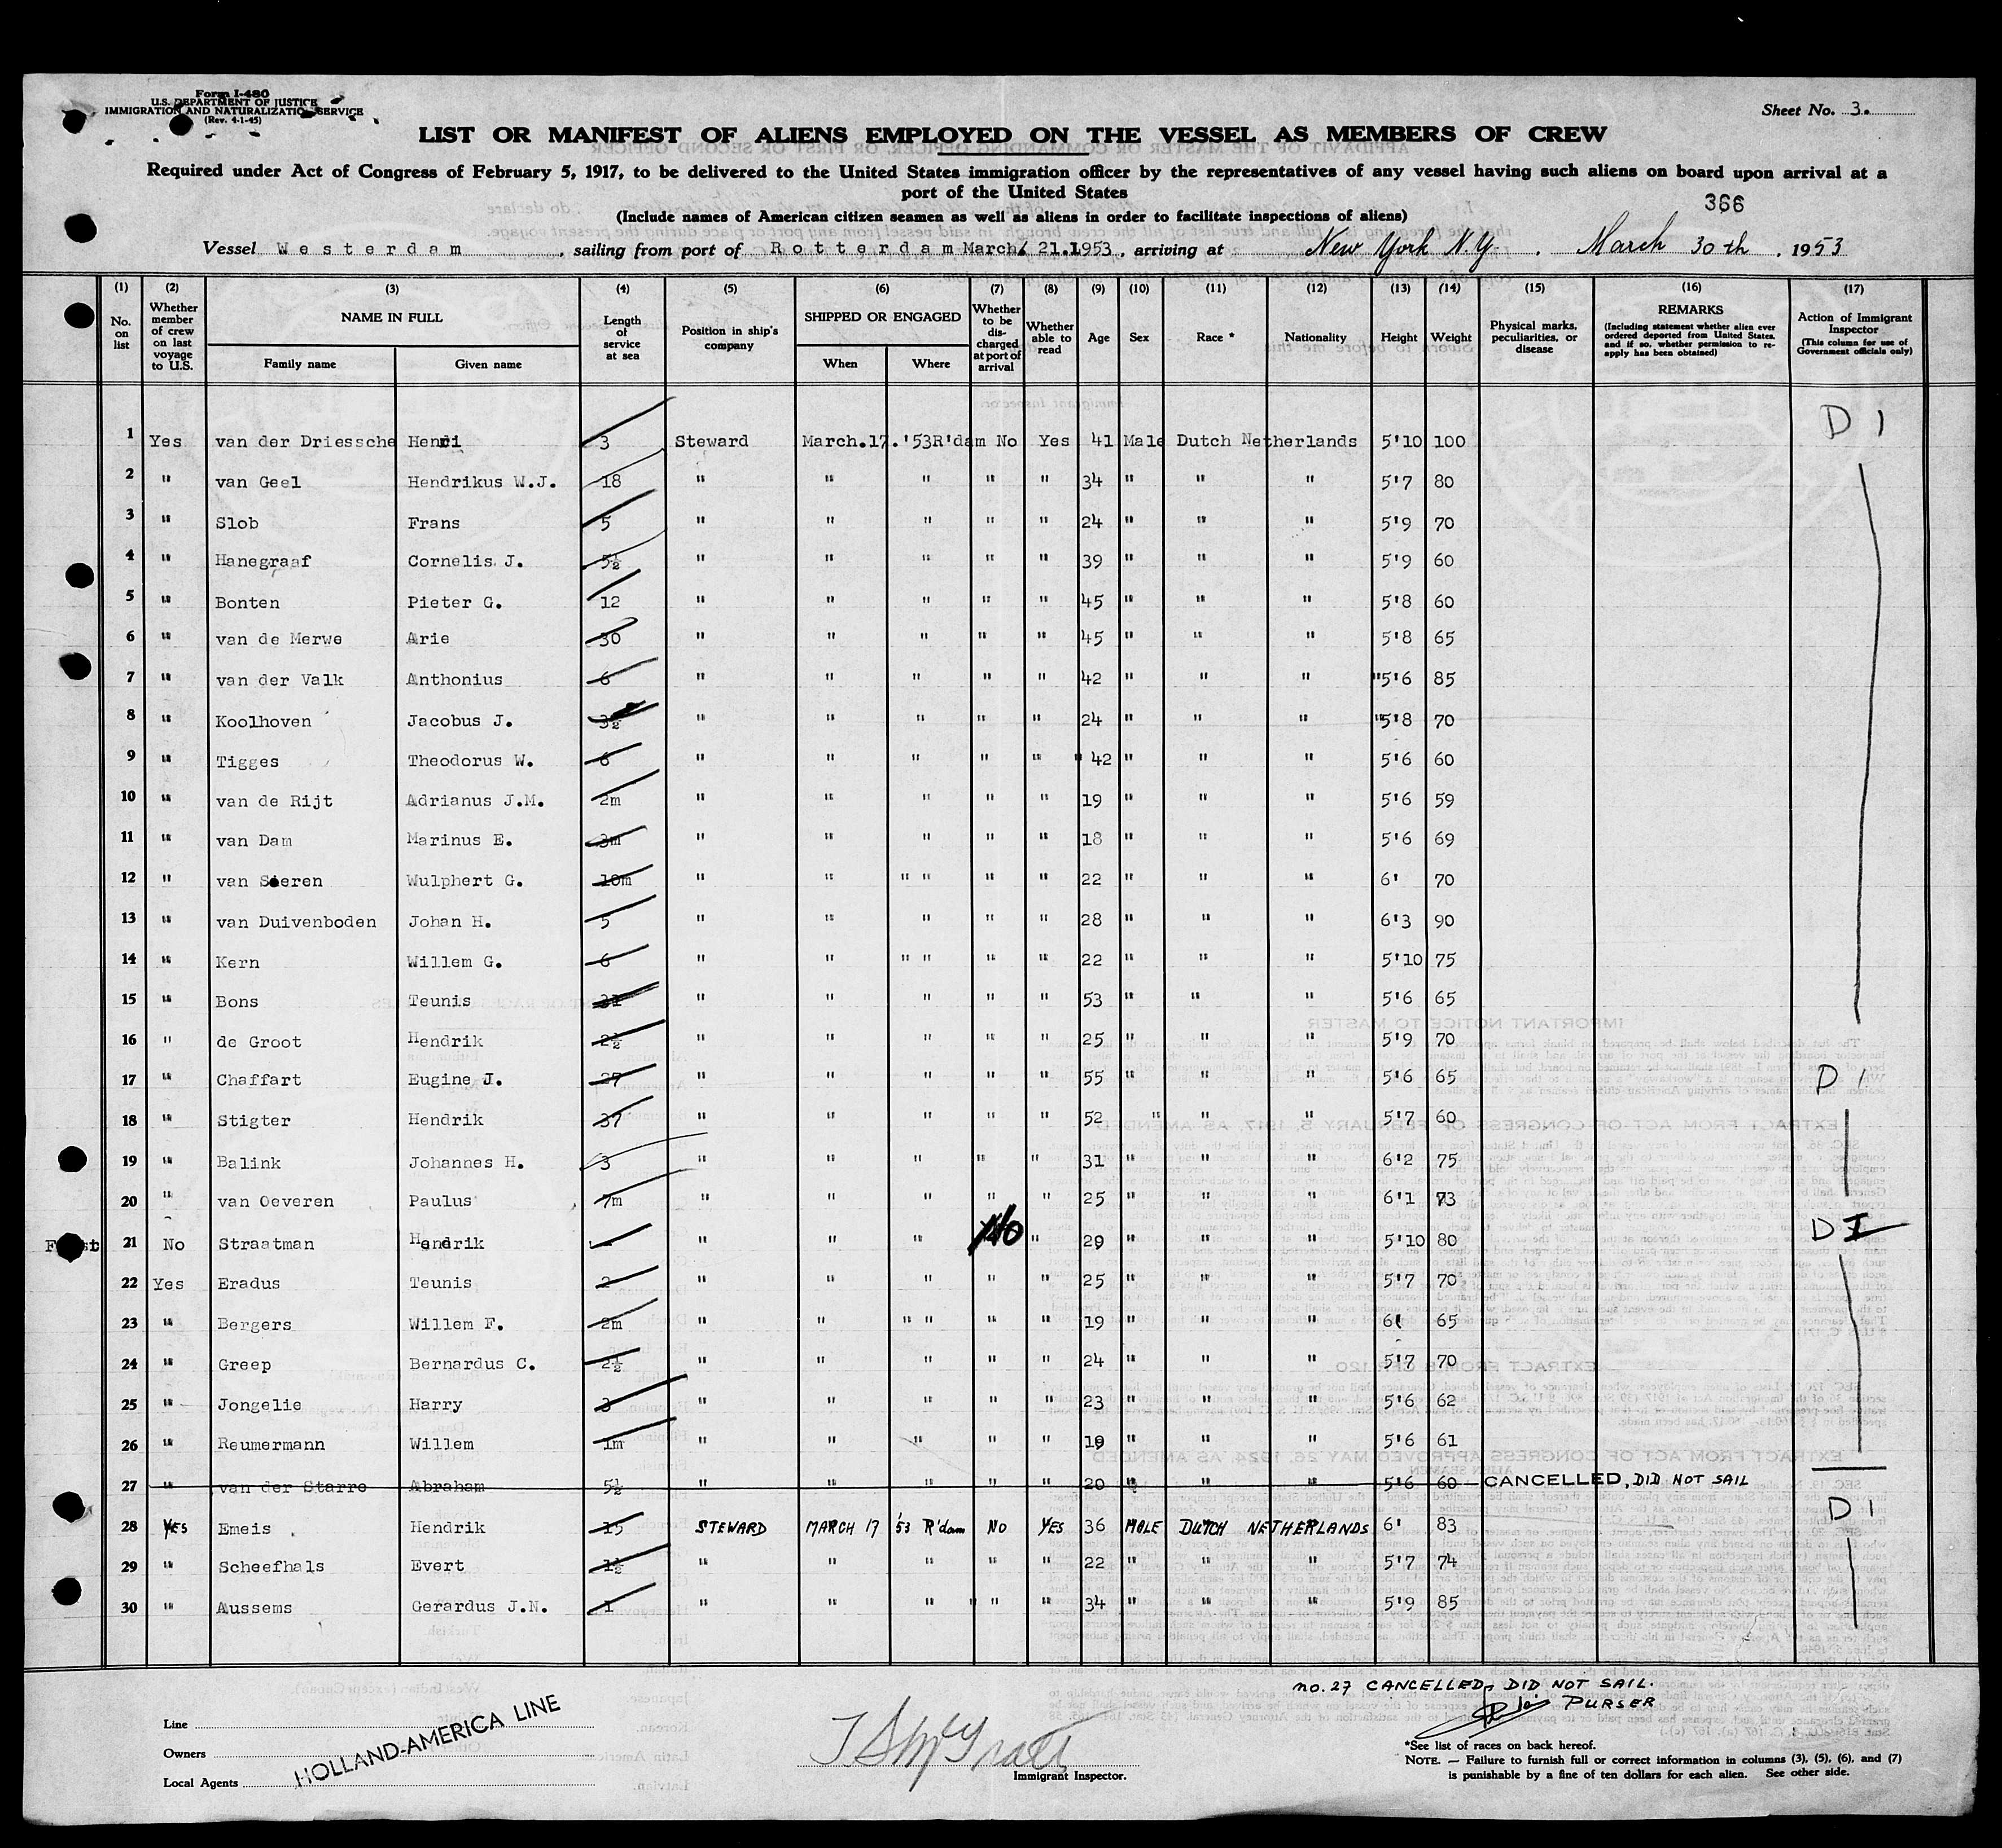 Form I-480
U.S. DEPARTMENT OF JUSTICE
IMMIGRATION AND NATURALIZATION SERVICE
(Rev. 4-1-45)
Sheet No. 3.
LIST OR MANIFEST OF ALIENS EMPLOYED ON THE VESSEL AS MEMBERS OF CREW
Required under Act of Congress of February 5, 1917, to be delivered to the United States immigration officer by the representatives of any vessel having such aliens on board upon arrival at a
port of the United States
366
(Include names of American citizen seamen as well as aliens in order to facilitate inspections of aliens)
Vessel Westerdam, sailing from port of Rotterdam March 21.1953, arriving at New York N.Y. March 30th, 1953
(1) (2) (3) (4) (5) (6) (7) (8) (9) (10) (11) (12) (13) (14) (15) (16) (17)
No. on list Whether member of crew on last voyage to U.S. NAME IN FULL Family name Given name Length of service at sea Position in ship's company SHIPPED OR ENGAGED When Where Whether to be discharged at port of arrival Whether able to read Age Sex Race * Nationality Height Weight Physical marks, peculiarities, or disease REMARKS (Including statement whether alien ever ordered deported from United States, and if so, whether permission to reapply has been obtained) Action of Immigrant Inspector (This column for use of Government officials only)
1 Yes van der Driessche Henri 3 Steward March.17.'53 R'dam No Yes 41 Male Dutch Netherlands 5'10 100 D 1
2 " van Geel Hendrikus W.J. 18 " " " " " 34 " " " 5'7 80
3 " Slob Frans 5 " " " " " 24 " " " 5'9 70
4 " Hanegraaf Cornelis J. 5½ " " " " " 39 " " " 5'9 60
5 " Bonten Pieter G. 12 " " " " " 45 " " " 5'8 60
6 " van de Merwe Arie 30 " " " " " 45 " " " 5'8 65
7 " van der Valk Anthonius 6 " " " " " 42 " " " "5'6 85
8 " Koolhoven Jacobus J. 3½ " " " " " 24 " " " "5'8 70
9 " Tigges Theodorus W. 6 " " " " " " 42 " " " 5'6 60
10 " van de Rijt Adrianus J.M. 2m " " " " " 19 " " " 5'6 59
11 " van Dam Marinus E. 3m " " " " " 18 " " " 5'6 69
12 " van Wulphert G. 10m " " " " " " 22 " " " 6' 70
13 " van Duivenboden Johan H. 5 " " " " " 28 " " " 6'3 90
14 " Kern Willem G. 6 " " " " " " 22 " " " 5'10 75
15 " Bons Teunis 31 " " " " " 53 " " " 5'6 65
16 " de Groot Hendrik 2½ " " " " " 25 " " " 5'9 70
17 " Chaffart Eugine J. 27 " " " " " 55 " " " 5'6 65 D 1
18 " Stigter Hendrik 37 " " " " " 52 " " " 5'7 60
19 " Balink Johannes H. 3 " " " " " 31 " " " 6'2 75
20 " van Oeveren Paulus 7m " " " " " 25 " " " 6'1 73
21 No Straatman Hendrik " " " No " 29 " " " 5'10 80 D
22 Yes Eradus Teunis 2 " " " " " 25 " " " 5'7 70
23 " Bergers Willem F. 2m " " " " " " 19 " " " 6( 65
24 " Greep Bernardus C. 2½ " " " " " 24 " " " 5'7 70
25 " Jongelie Harry 3 " " " " " 23 " " " 5'6 62
26 " Reumermann Willem 1m " " " " " 19 " " " 5'6 61
27 " van der Starre Abraham 5½ " " " " " 20 " " " 5'6 60 CANCELLED, DID NOT SAIL
28 YES Emeis Hendrik 15 STEWARD MARCH 17 '53 R'dam NO YES 36 MALE DUTCH NETHERLANDS 6' 83 D 1
29 " Scheefhals Evert 1½ " " " " " 22 " " " 5'7 74
30 " Aussems Gerardus J.N. 1 " " " " " " 34 " " " 5'9 85
NO. 27 CANCELLED, DID NOT SAIL.
PURSER
Line
Owners
Local Agents
HOLLAND-AMERICA LINE
Immigrant Inspector.
*See list of races on back hereof.
NOTE. — Failure to furnish full or correct information in columns (3), (5), (6), and (7)
is punishable by a fine of ten dollars for each alien. See other side.